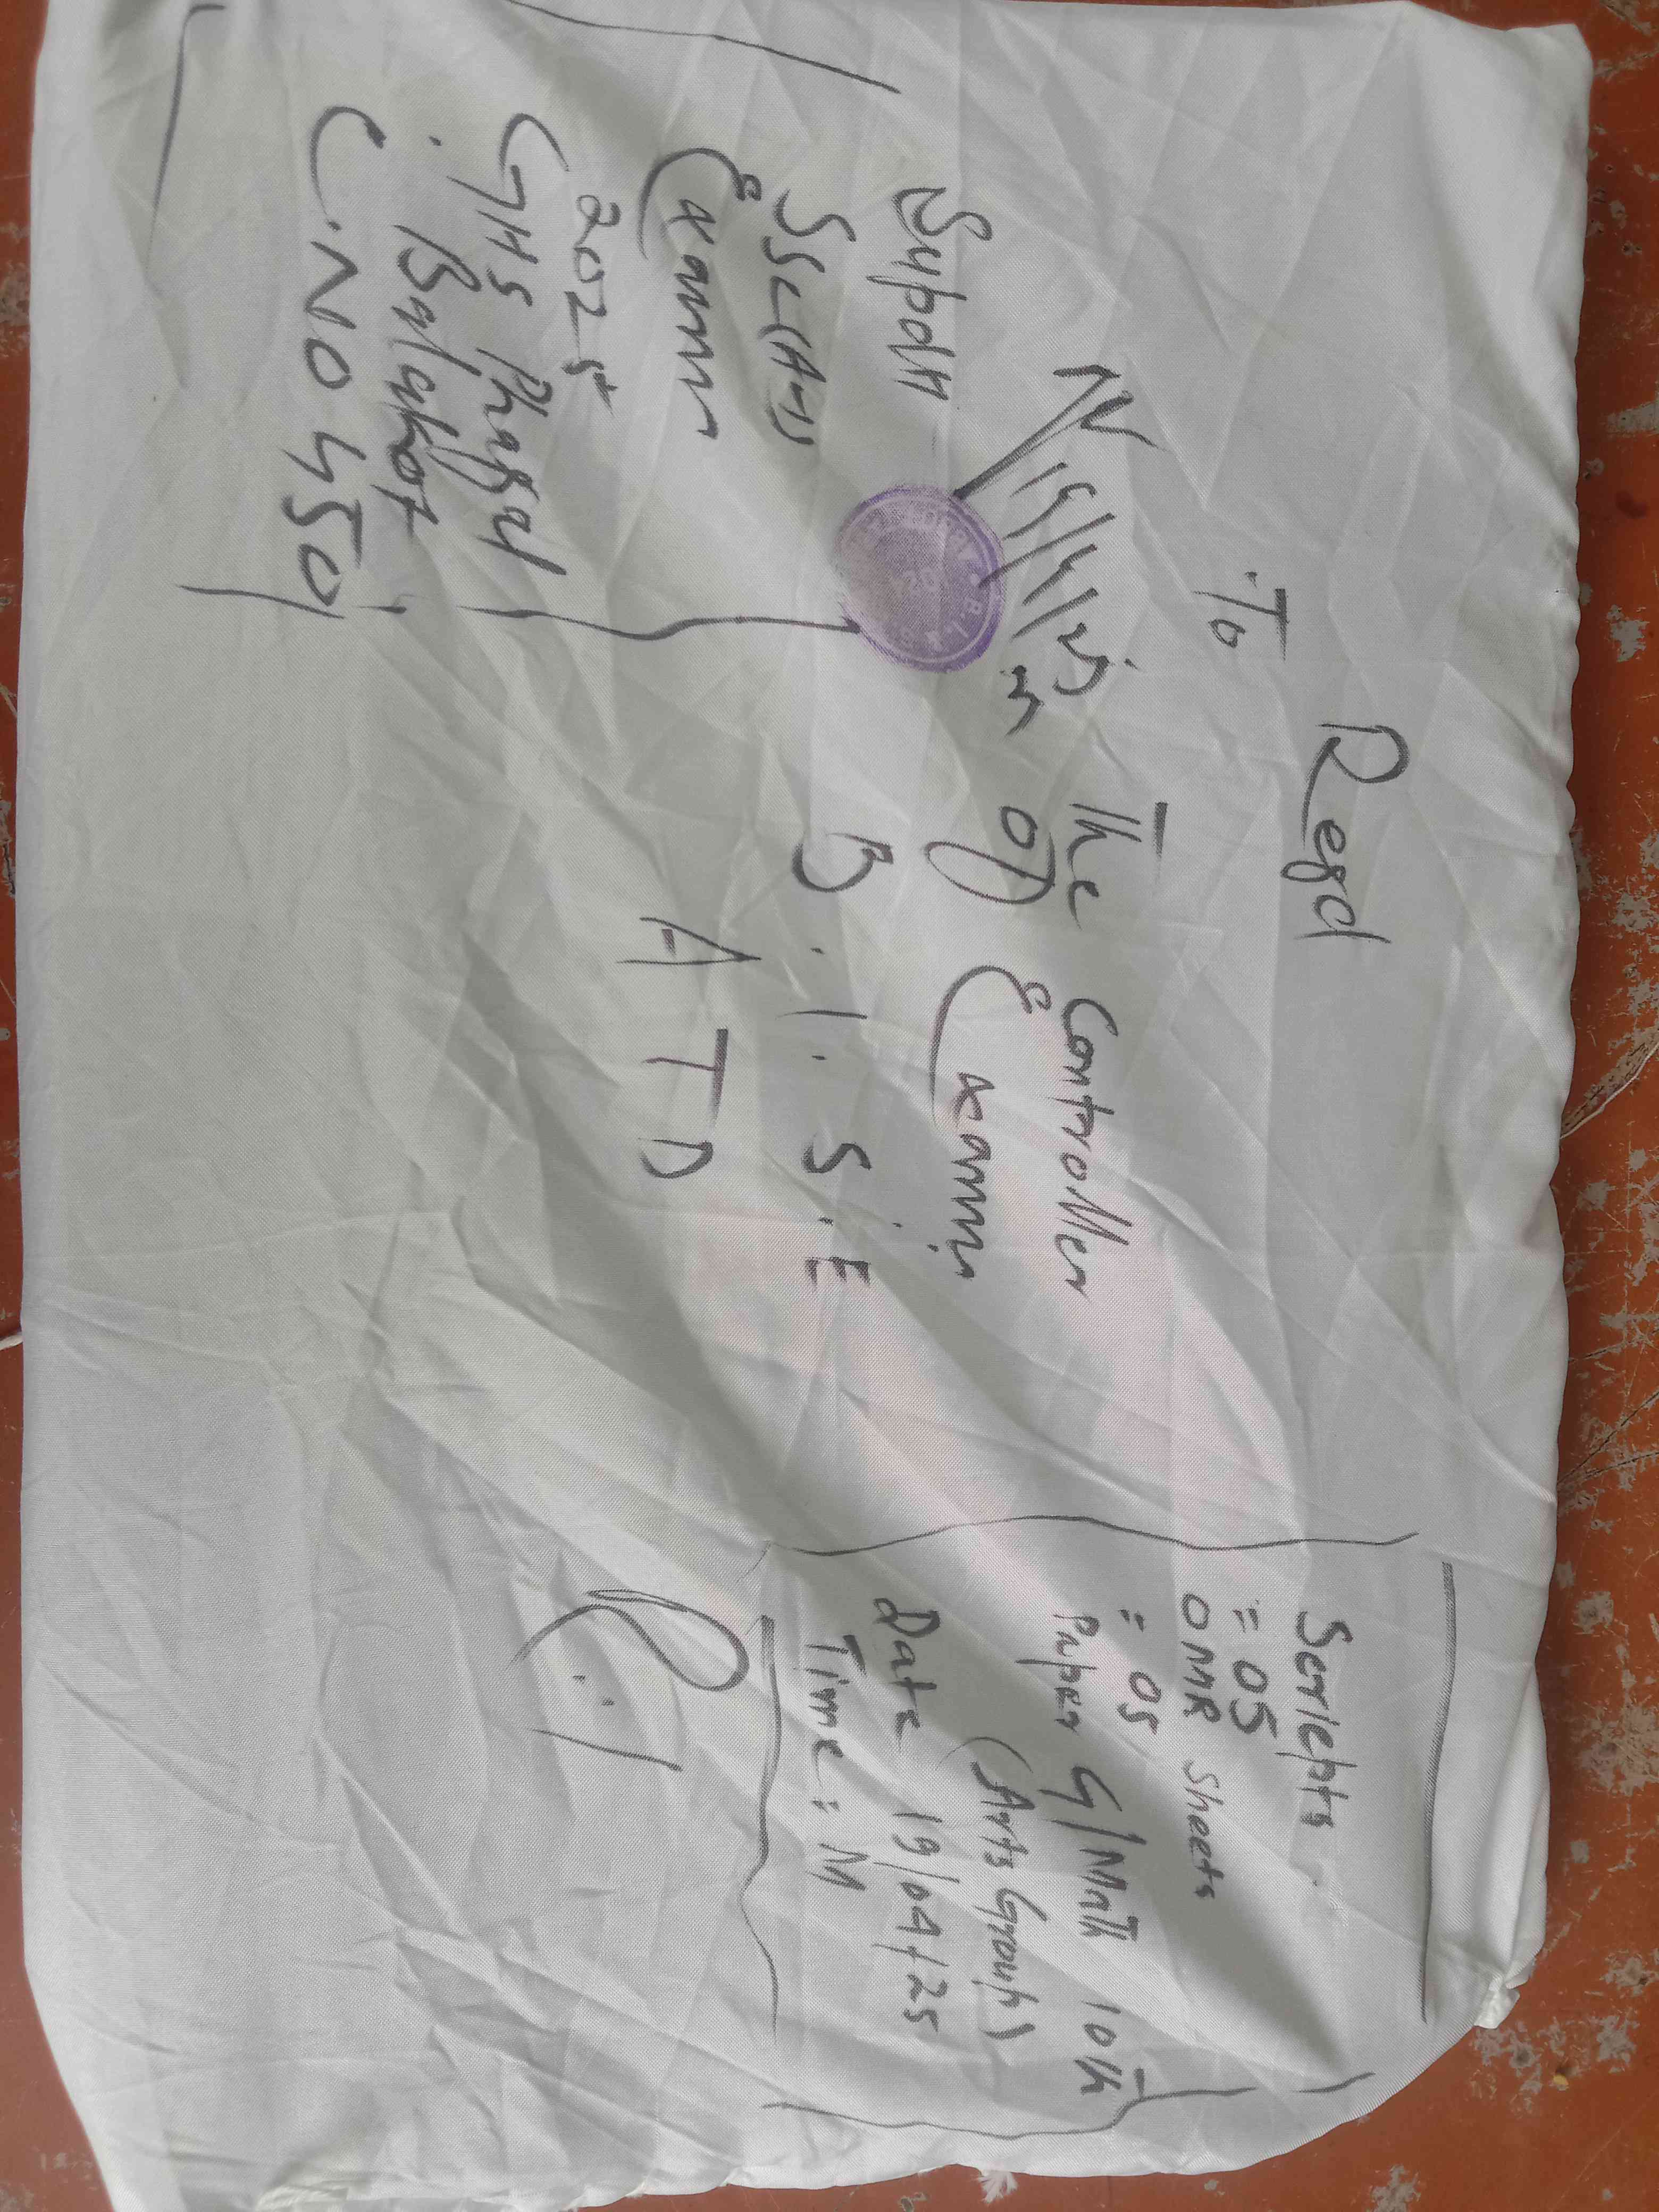 Regd
To
The Controller
of Examin
B.I.S.E
ATD
Supdtt
SSC(A-I)
Examn
2025
GHS Phagal
Balakot
C.NO 450
Scriepts
= 05
OMR Sheets
= 05
Paper G/Math 10th
(Arts Group)
Date 19/04/25
Time: M